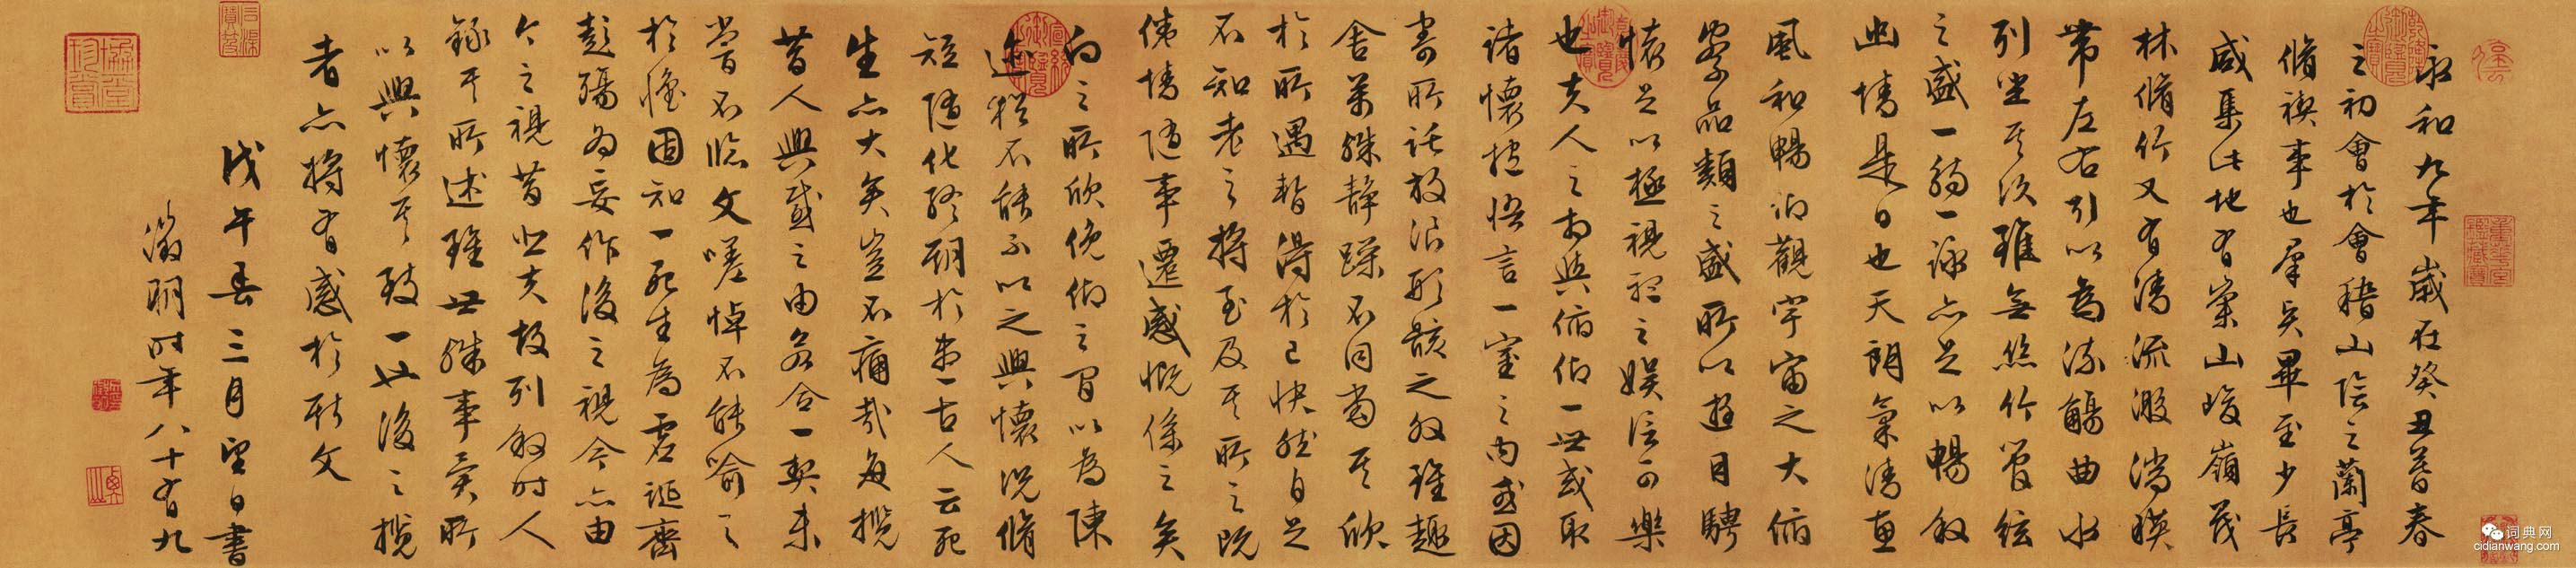 永和九年歲在癸丑暮春
之初會於會稽山陰之蘭亭
脩禊事也羣賢畢至少長
咸集此地有崇山峻嶺茂
林脩竹又有清流激湍暎
帶左右引以為流觴曲水
列坐其次雖無絲竹管絃
之盛一觴一詠亦足以暢敘
幽情是日也天朗氣清惠
風和暢仰觀宇宙之大俯
察品類之盛所以遊目騁
懷足以極視聽之娛信可樂
也夫人之相與俯仰一世或取
諸懷抱悟言一室之內或因
寄所託放浪形骸之外雖趣
舍萬殊靜躁不同當其欣
於所遇暫得於己快然自足
不知老之將至及其所之既
倦情隨事遷感慨係之矣
向之所欣俛仰之間以為陳
迹猶不能不以之興懷況脩
短隨化終期於盡古人云死
生亦大矣豈不痛哉每攬
昔人興感之由若合一契未
嘗不臨文嗟悼不能喻之
於懷固知一死生為虛誕齊
彭殤為妄作後之視今亦由
今之視昔悲夫故列敘時人
錄其所述雖世殊事異所
以興懷其致一也後之攬
者亦將有感於斯文
戊午春三月望日書
徵明時年八十有九
词典网
cidianwang.com